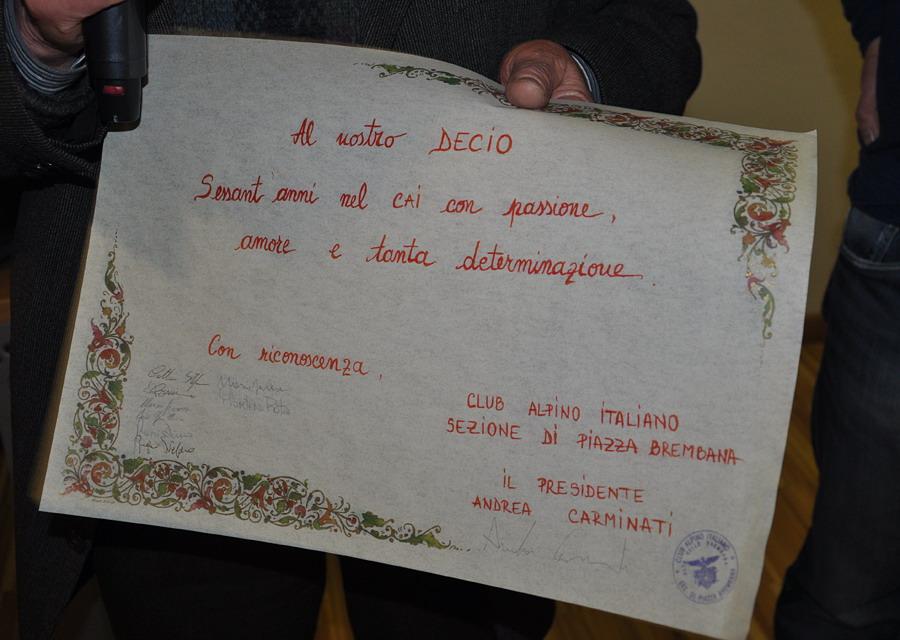 Al nostro DECIO
Sessant'anni nel CAI con passione,
amore e tanta determinazione.
Con riconoscenza,
CLUB ALPINO ITALIANO
SEZIONE DI PIAZZA BREMBANA
IL PRESIDENTE
ANDREA CARMINATI
CLUB ALPINO ITALIANO